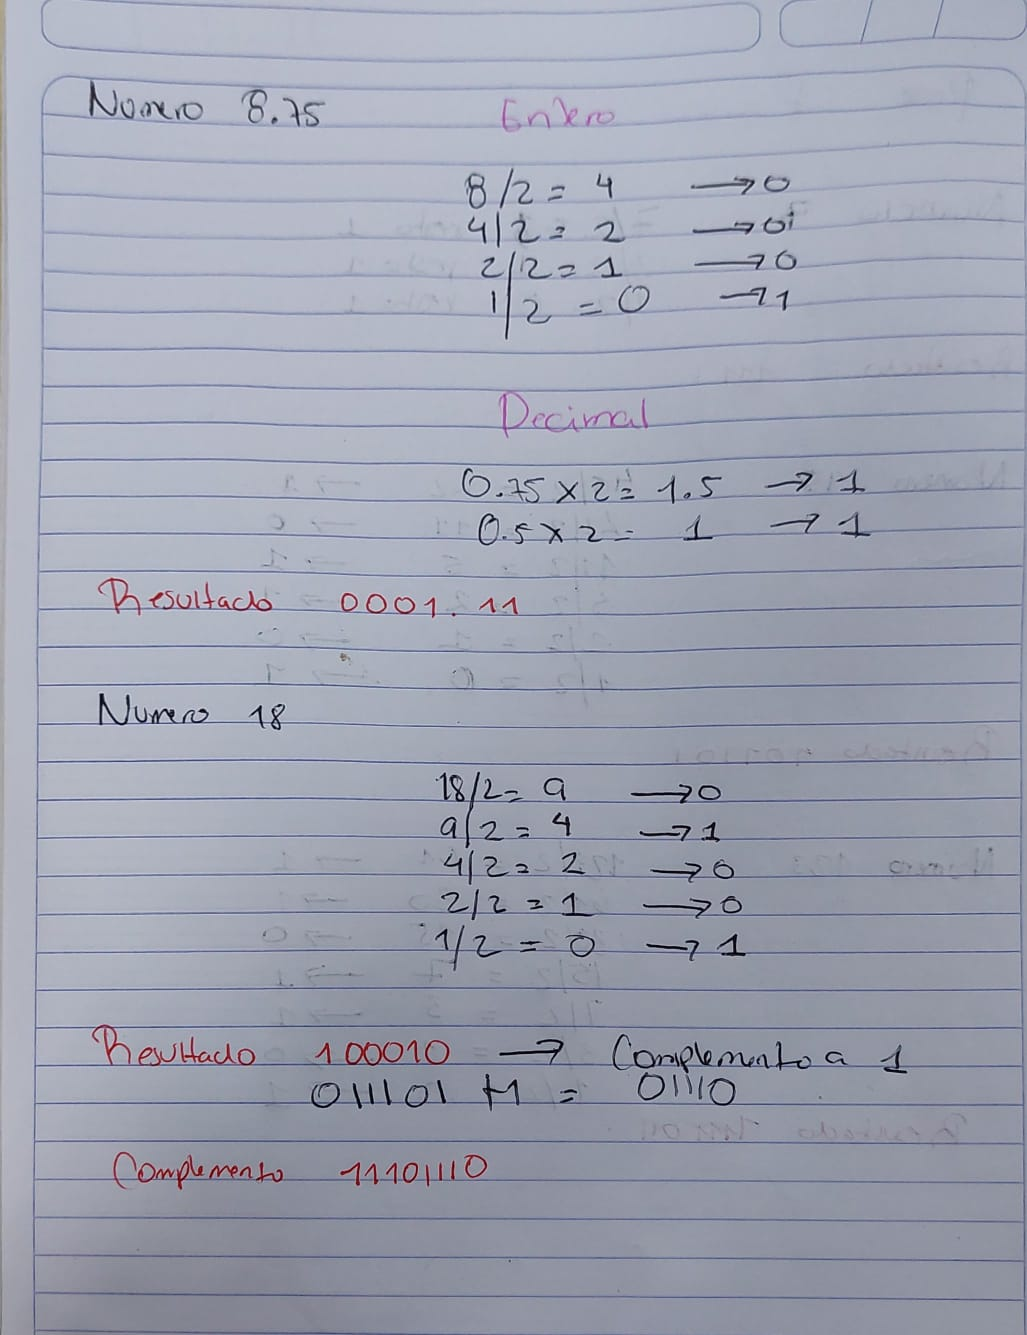 Numero 8.75
Entero
8/2 = 4 → 0
4/2 = 2 → 0
2/2 = 1 → 0
1/2 = 0 → 1
Decimal
0.75 x 2 = 1.5 → 1
0.5 x 2 = 1 → 1
Resultado 0001.11
Numero 18
18/2 = 9 → 0
9/2 = 4 → 1
4/2 = 2 → 0
2/2 = 1 → 0
1/2 = 0 → 1
Resultado 100010 → Complemento a 1
011101 +1 = 01110
Complemento 11101110